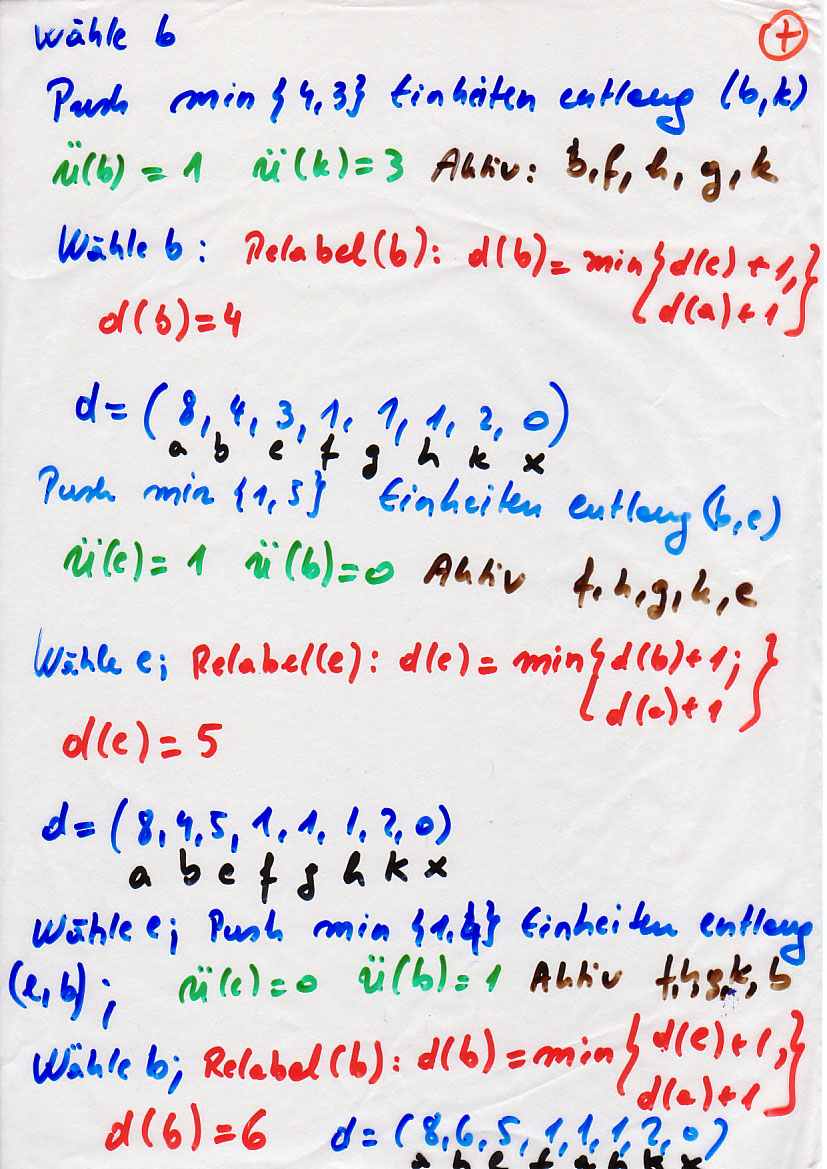 Wähle b
+
Push min {4,3} Einheiten entlang (b,k)
ü(b) = 1 ü(k)=3 Aktiv: b,f,h,g,k
Wähle b: Relabel(b): d(b)= min {d(e)+1,
d(a)+1}
d(b)=4
d=(8,4,3,1,1,1,2,0)
a b e f g h k x
Push min {1,5} Einheiten entlang (b,e)
ü(e)=1 ü(b)=0 Aktiv f,h,g,k,e
Wähle e; Relabel(e): d(e)= min {d(b)+1;
d(a)+1}
d(e)=5
d=(8,4,5,1,1,1,2,0)
a b e f g h k x
Wähle e; Push min {1,4} Einheiten entlang
(e,b); ü(e)=0 ü(b)=1 Aktiv f,h,g,k,b
Wähle b; Relabel(b): d(b)=min {d(e)+1,
d(a)+1}
d(b)=6 d=(8,6,5,1,1,1,2,0)
a b e f g h k x